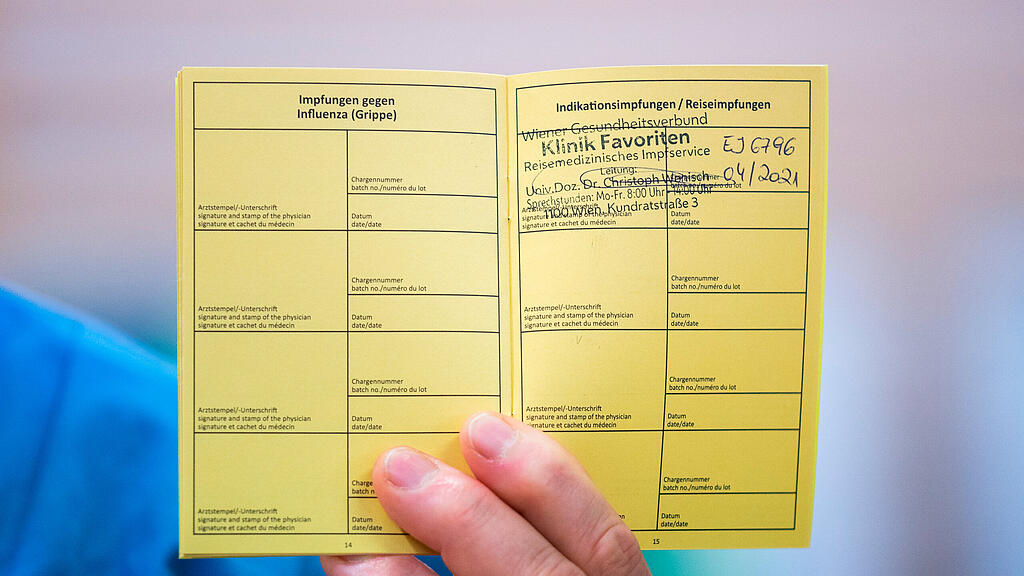 Impfungen gegen
Influenza (Grippe)
Chargennummer
batch no./numéro du lot
Arztstempel/-Unterschrift
signature and stamp of the physician
signature et cachet du médecin
Datum
date/date
Chargennummer
batch no./numéro du lot
Arztstempel/-Unterschrift
signature and stamp of the physician
signature et cachet du médecin
Datum
date/date
Chargennummer
batch no./numéro du lot
Arztstempel/-Unterschrift
signature and stamp of the physician
signature et cachet du médecin
Datum
date/date
Arztstempel/-Unterschrift
signature and stamp of the physician
signature et cachet du médecin
Datum
date/date
14
Indikationsimpfungen / Reiseimpfungen
Wiener Gesundheitsverbund
Klinik Favoriten
Reisemedizinisches Impfservice
Leitung:
Univ.Doz. Dr. Christoph Wenisch
Sprechstunden: Mo-Fr. 8:00 Uhr - 14:00 Uhr
1100 Wien, Kundratstraße 3
EJ 6796
04/2021
batch no./numéro du lot
signature and stamp of the physician
signature et cachet du médecin
Datum
date/date
Chargennummer
batch no./numéro du lot
Arztstempel/-Unterschrift
signature and stamp of the physician
signature et cachet du médecin
Datum
date/date
Chargennummer
batch no./numéro du lot
Arztstempel/-Unterschrift
signature and stamp of the physician
signature et cachet du médecin
Datum
date/date
Chargennummer
batch no./numéro du lot
Datum
date/date
15